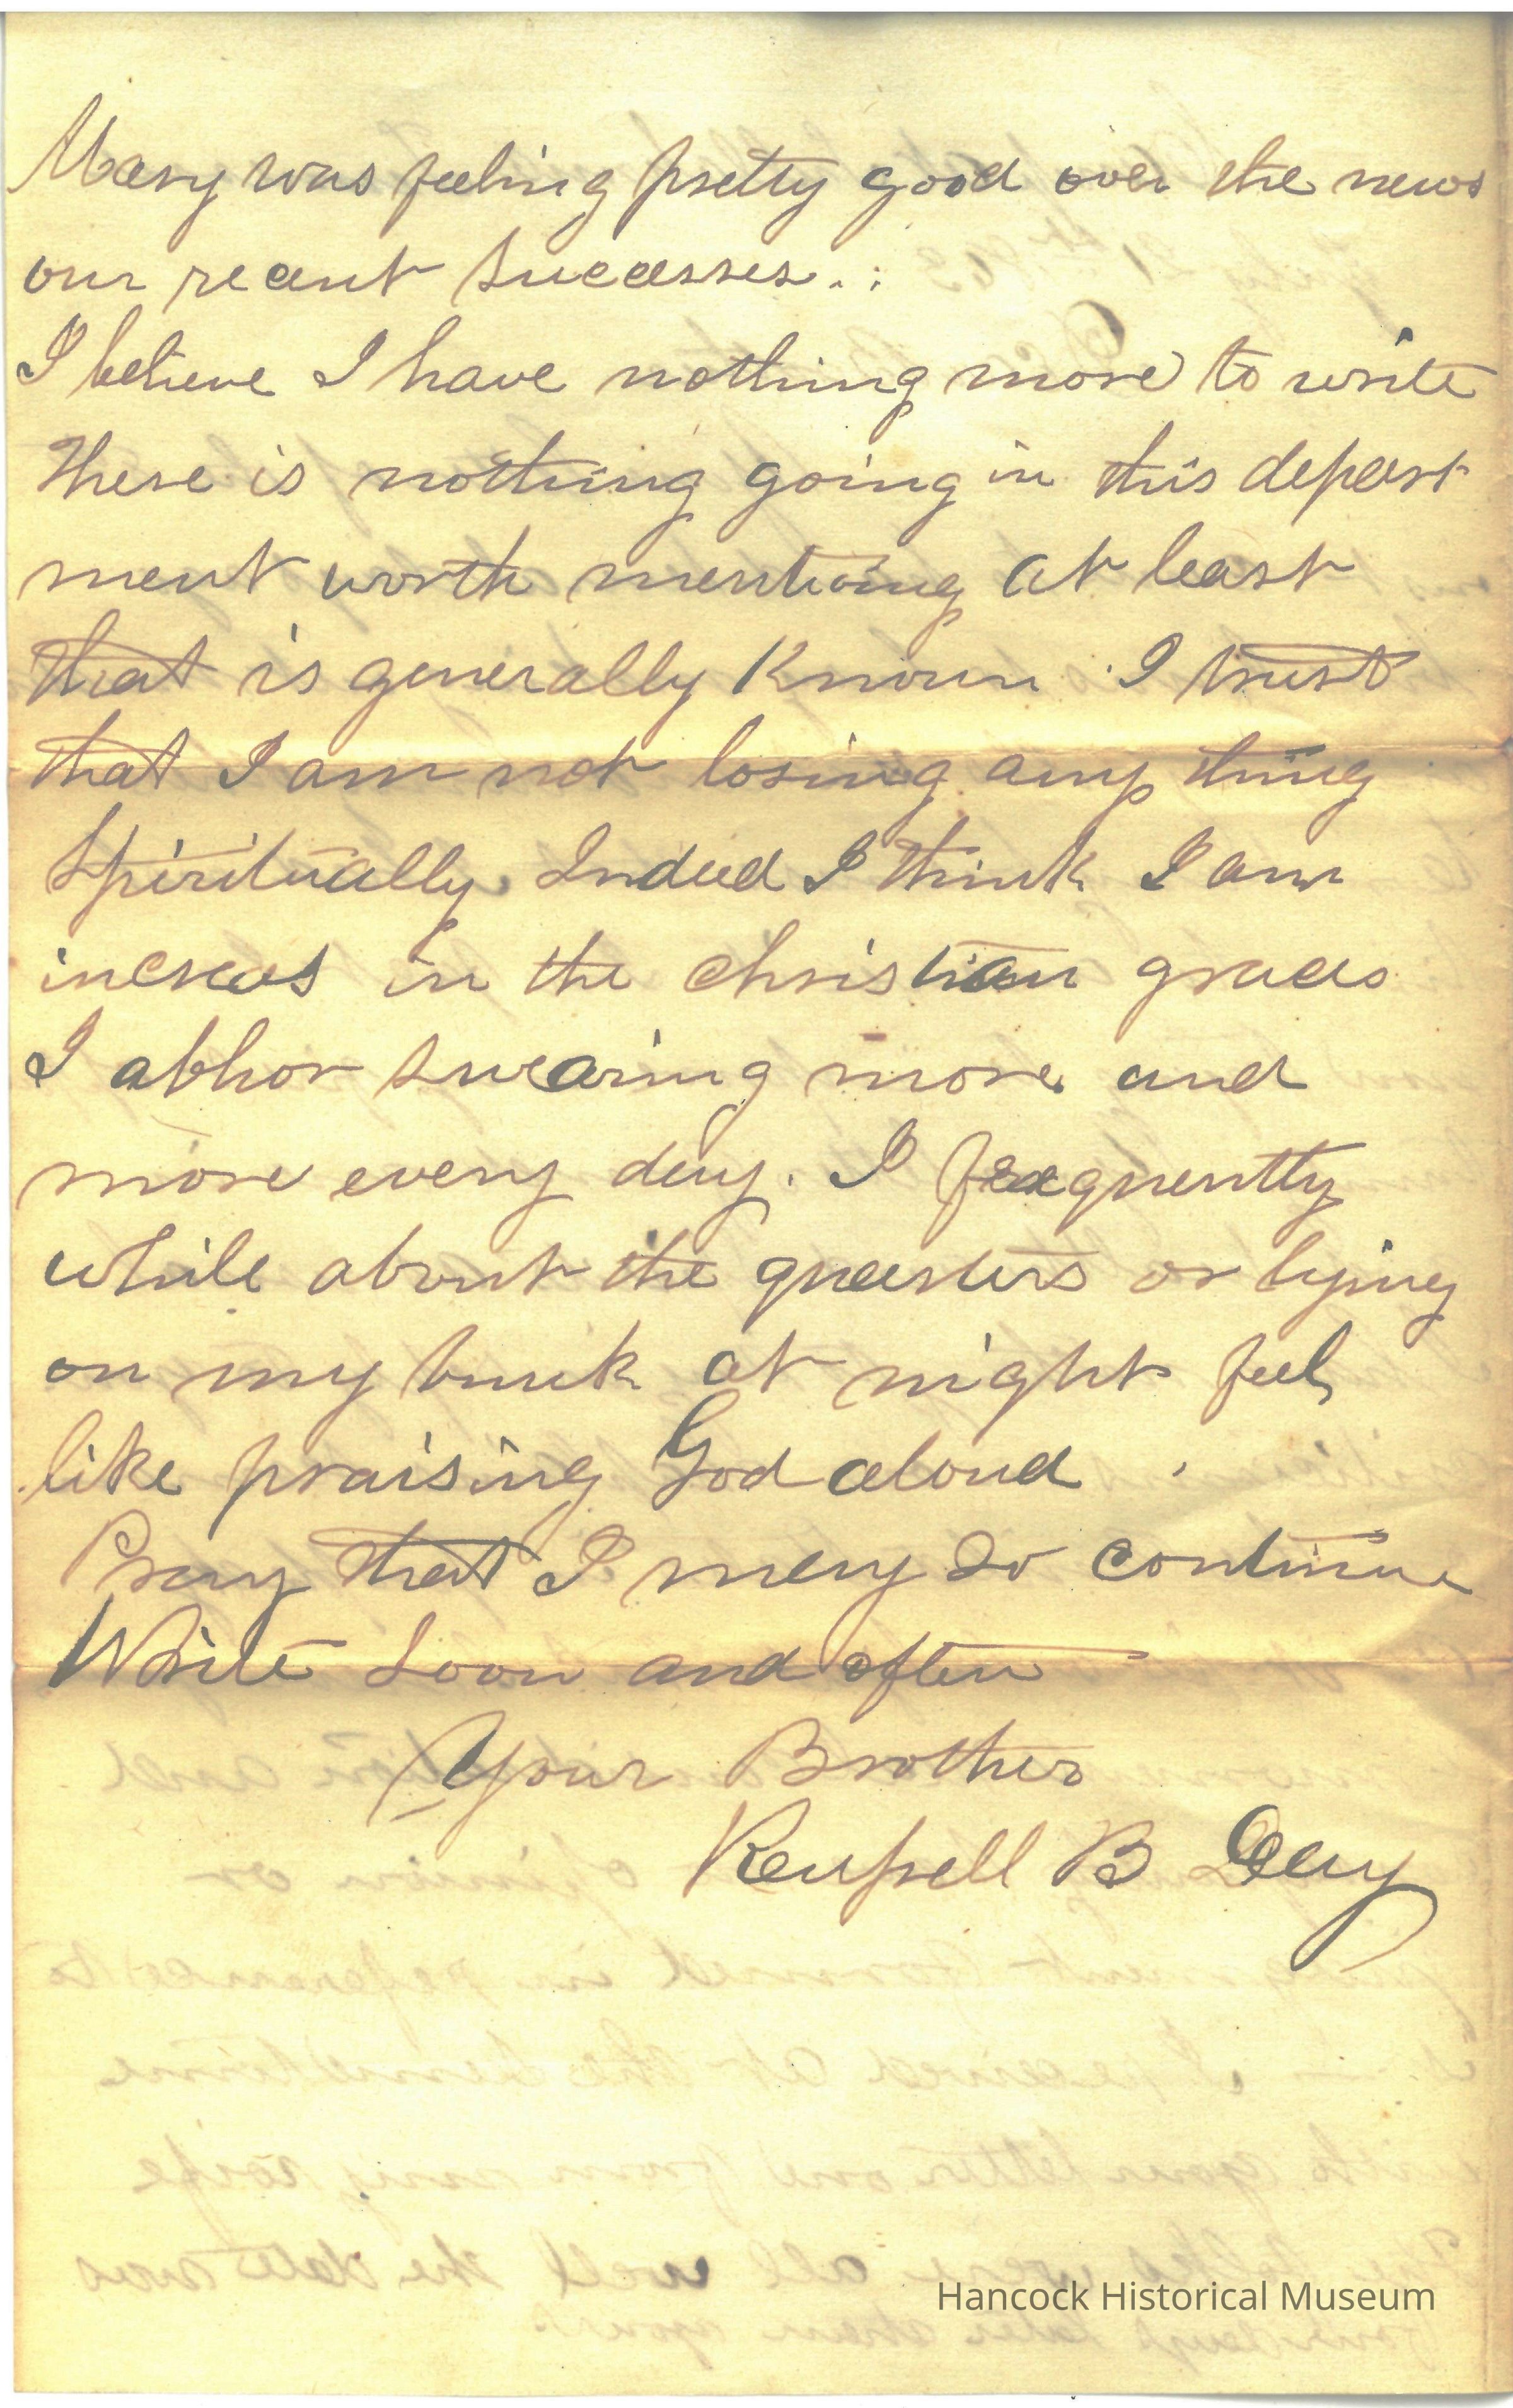 Mary was feeling pretty good over the news
our recent successes.
I believe I have nothing more to write
There is nothing going in this depart
ment worth mentioing at least
that is generally Known. I trust
that I am not losing any thing
Spiritually. Indeed I think I am
increas in the christian graces
I abhor swearing more and
more every day. I frequently
while about the quarters or lying
on my bunk at night feel
like praising God aloud.
Pray that I may so continue
Write Soon and often
Your Brother
Russell B Day
Hancock Historical Museum